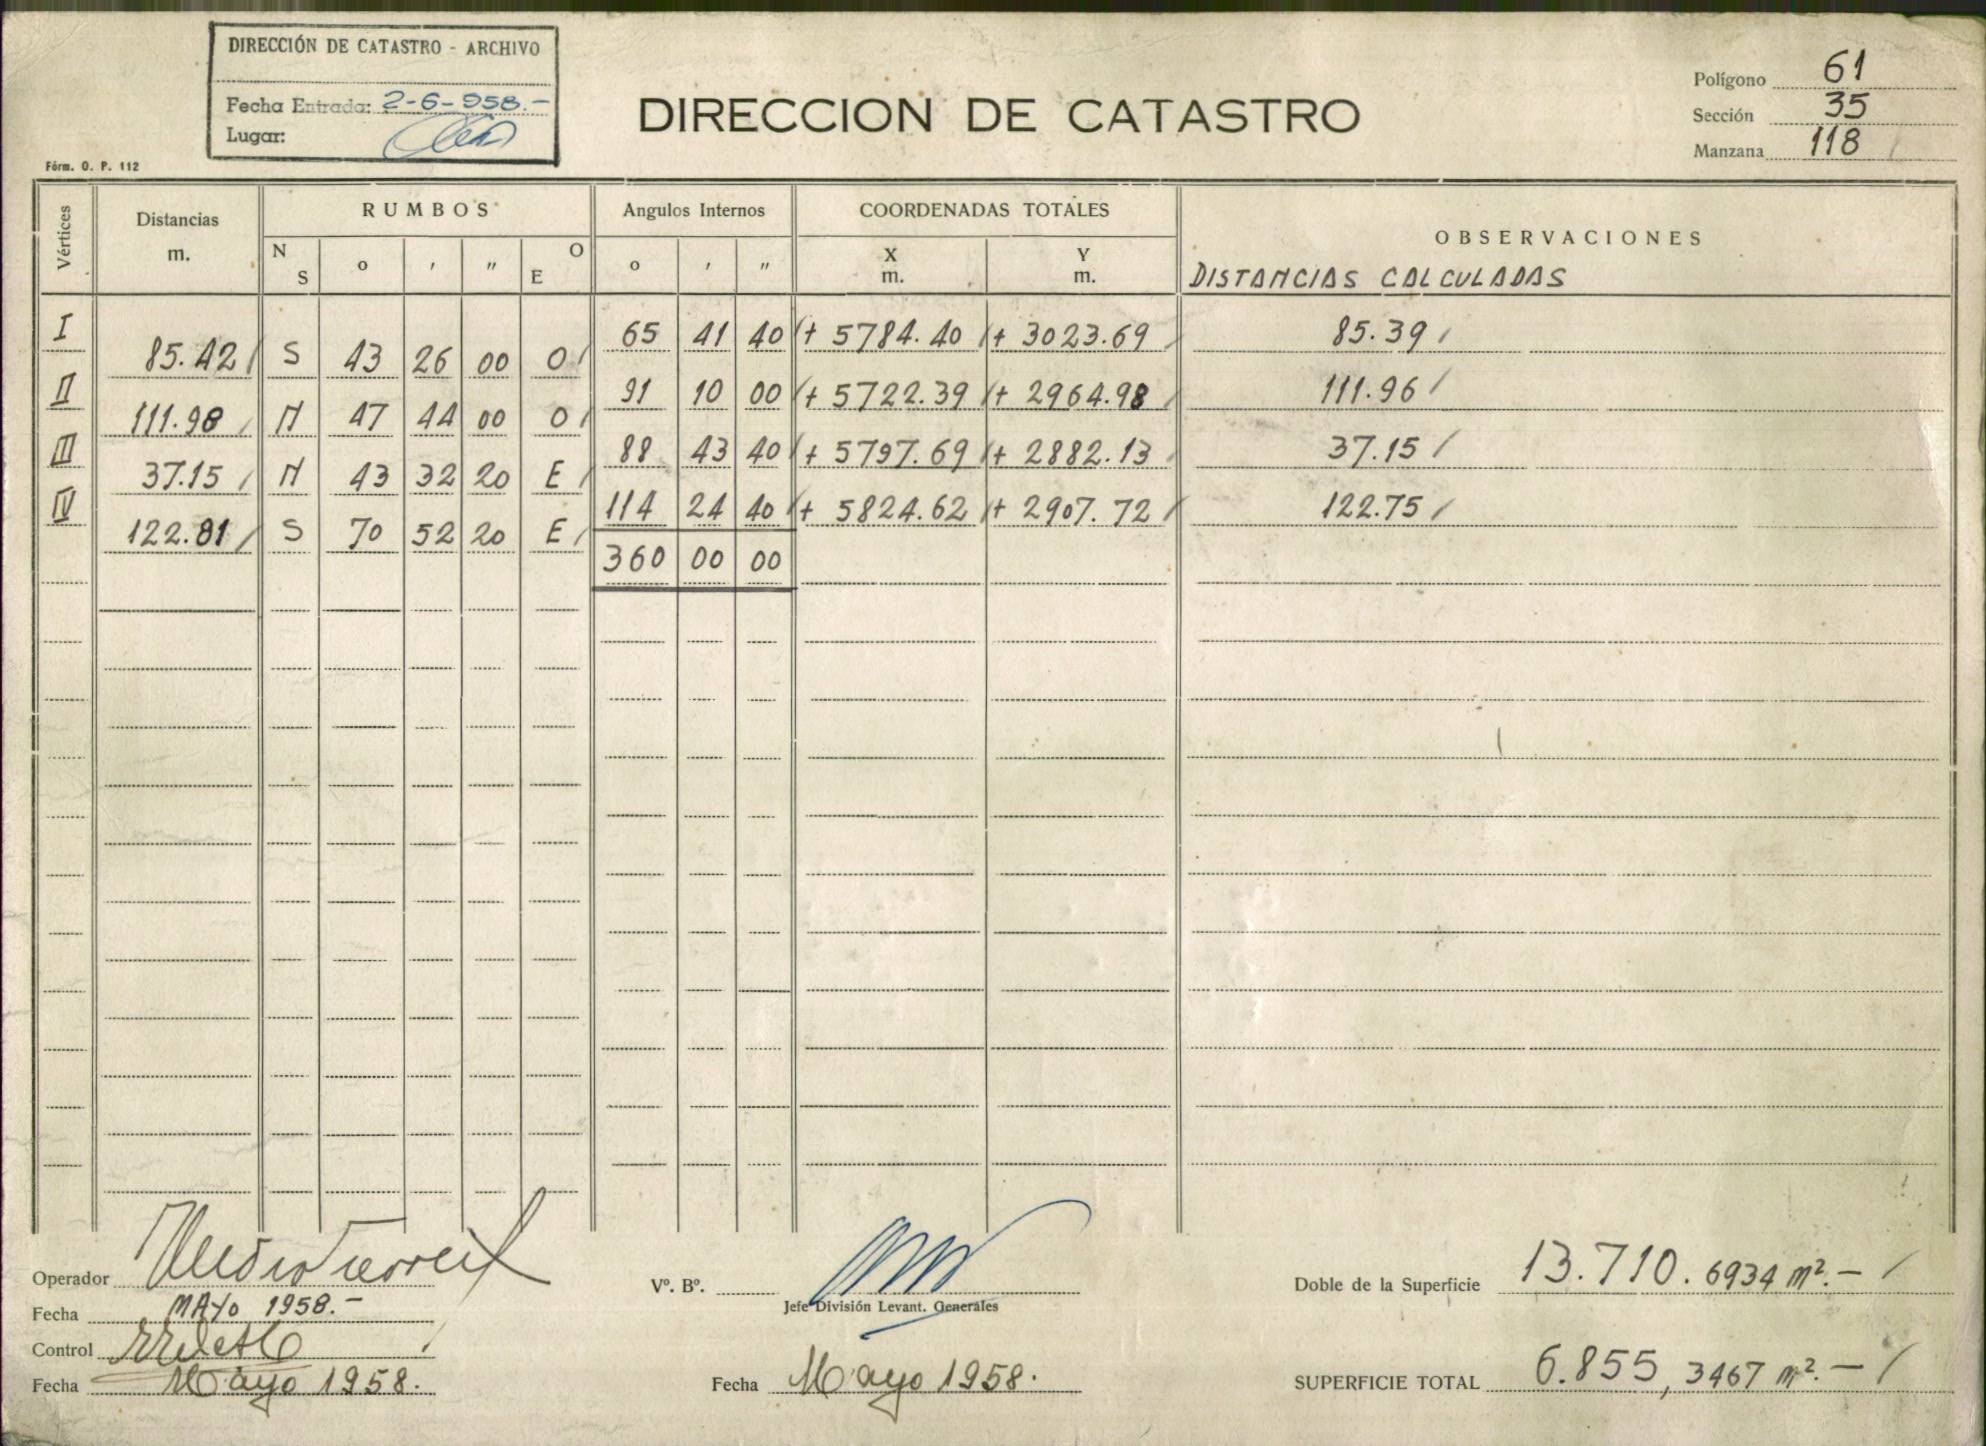 DIRECCIÓN DE CATASTRO - ARCHIVO
Fecha Entrada: 2-6-958.-
Lugar:
DIRECCION DE CATASTRO
Polígono 61
Sección 35
Manzana 118
Fórm. O. P. 112
Vértices
Distancias m.
RUMBOS
Angulos Internos
COORDENADAS TOTALES
OBSERVACIONES
N S o ′ ″ O E
o ′ ″
X m.
Y m.
DISTANCIAS CALCULADAS
I 65 41 40 + 5784.40 + 3023.69 85.39
85.42 S 43 26 00 O
II 91 10 00 + 5722.39 + 2964.98 111.96
111.98 N 47 44 00 O
III 88 43 40 + 5797.69 + 2882.13 37.15
37.15 N 43 32 20 E
IV 114 24 40 + 5824.62 + 2907.72 122.75
122.81 S 70 52 20 E
360 00 00
Operador
Fecha MAYO 1958.-
Control
Fecha Mayo 1958.
Vº. Bº.
Jefe División Levant. Generales
Fecha Mayo 1958.
Doble de la Superficie 13.710.6934 m².-
SUPERFICIE TOTAL 6.855,3467 m².-